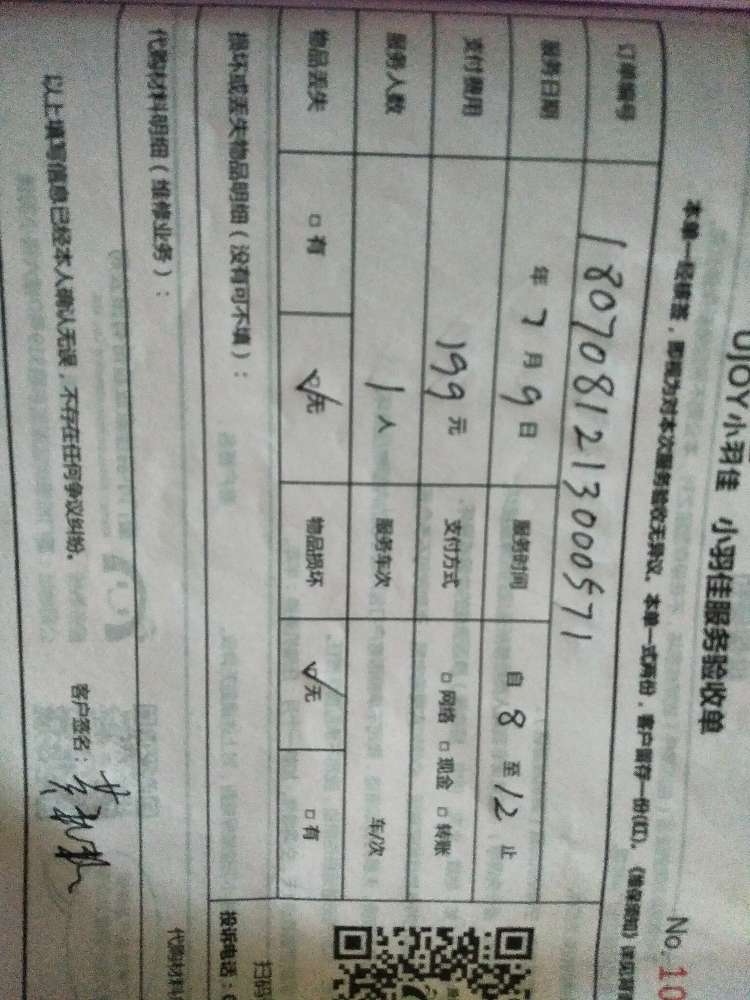 UJOY小羽佳 小羽佳服务验收单
No. 10
本单一经签签，即视为对本次服务验收无异议。本单一式两份，客户留存一份(红)。
订单编号 180708121300057​1
服务日期 年 7 月 9 日 服务时间 自 8 至 12 止
支付费用 199 元 支付方式 □ 网络 □ 现金 □ 转账
服务人数 1 人 服务车次 车/次
物品丢失 □ 有 ☑ 无 物品损坏 ☑ 无 □ 有
损坏或丢失物品明细（没有可不填）：
扫码
投诉电话：
代购材料明细（维修业务）：
代购材料
以上填写信息已经本人确认无误，不存在任何争议纠纷。
客户签名：